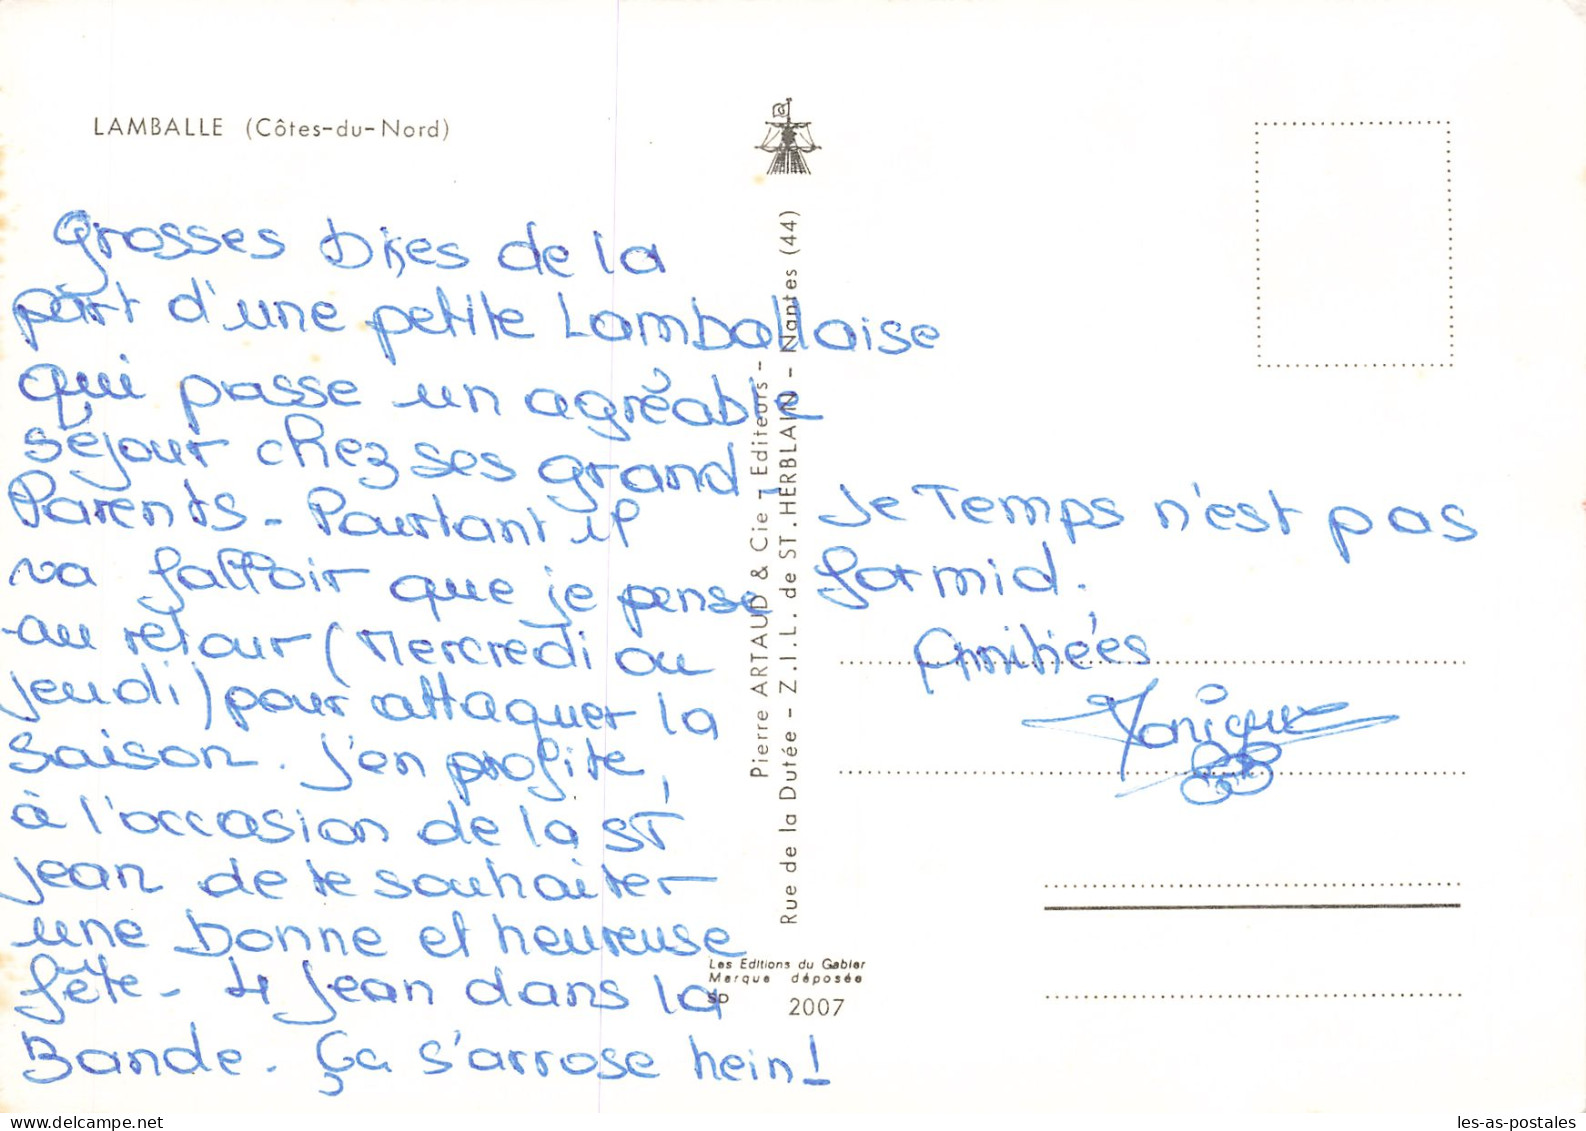 LAMBALLE (Côtes-du-Nord)
Grosses bises de la
part d'une petite Lamballaise
qui passe un agréable
séjour chez ses grand-
Parents - Pourtant il
va falloir que je pense
au retour (Mercredi ou
jeudi) pour attaquer la
saison. J'en profite,
à l'occasion de la ST
jean de te souhaiter
une bonne et heureuse
fête - 4 jean dans la
Bande. Ça s'arrose hein!
Pierre ARTAUD & Cie - Editeurs -
Rue de la Dutée - Z.I.L. de ST. HERBLAIN - Nantes (44)
Les Editions du Gabier
Marque déposée
SD 2007
Je Temps n'est pas
formid.
Amitiées
Monique
les-as-postales
delcampe.net